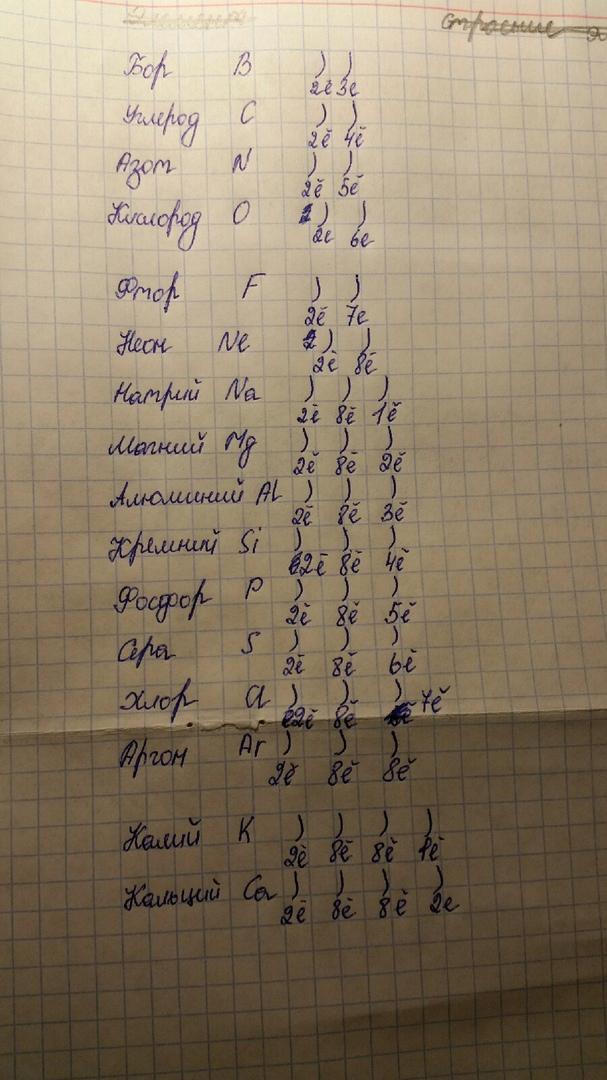 Элемент строение
Бор B ) ) 2ē 3ē
Углерод C ) ) 2ē 4ē
Азот N ) ) 2ē 5ē
Кислород O ) ) 2е 6е
Фтор F ) ) 2ē 7е
Неон Ne ) ) 2ē 8ē
Натрий Na ) ) ) 2ē 8ē 1ē
Магний Mg ) ) ) 2ē 8ē 2ē
Алюминий Al ) ) ) 2ē 8ē 3ē
Кремний Si ) ) ) 2ē 8ē 4ē
Фосфор P ) ) ) 2ē 8ē 5ē
Сера S ) ) ) 2ē 8ē 6ē
Хлор Cl ) ) ) 2ē 8ē 7ē
Аргон Ar ) ) ) 2ē 8ē 8ē
Калий K ) ) ) ) 2ē 8ē 8ē 1ē
Кальций Ca ) ) ) ) 2ē 8ē 8ē 2е